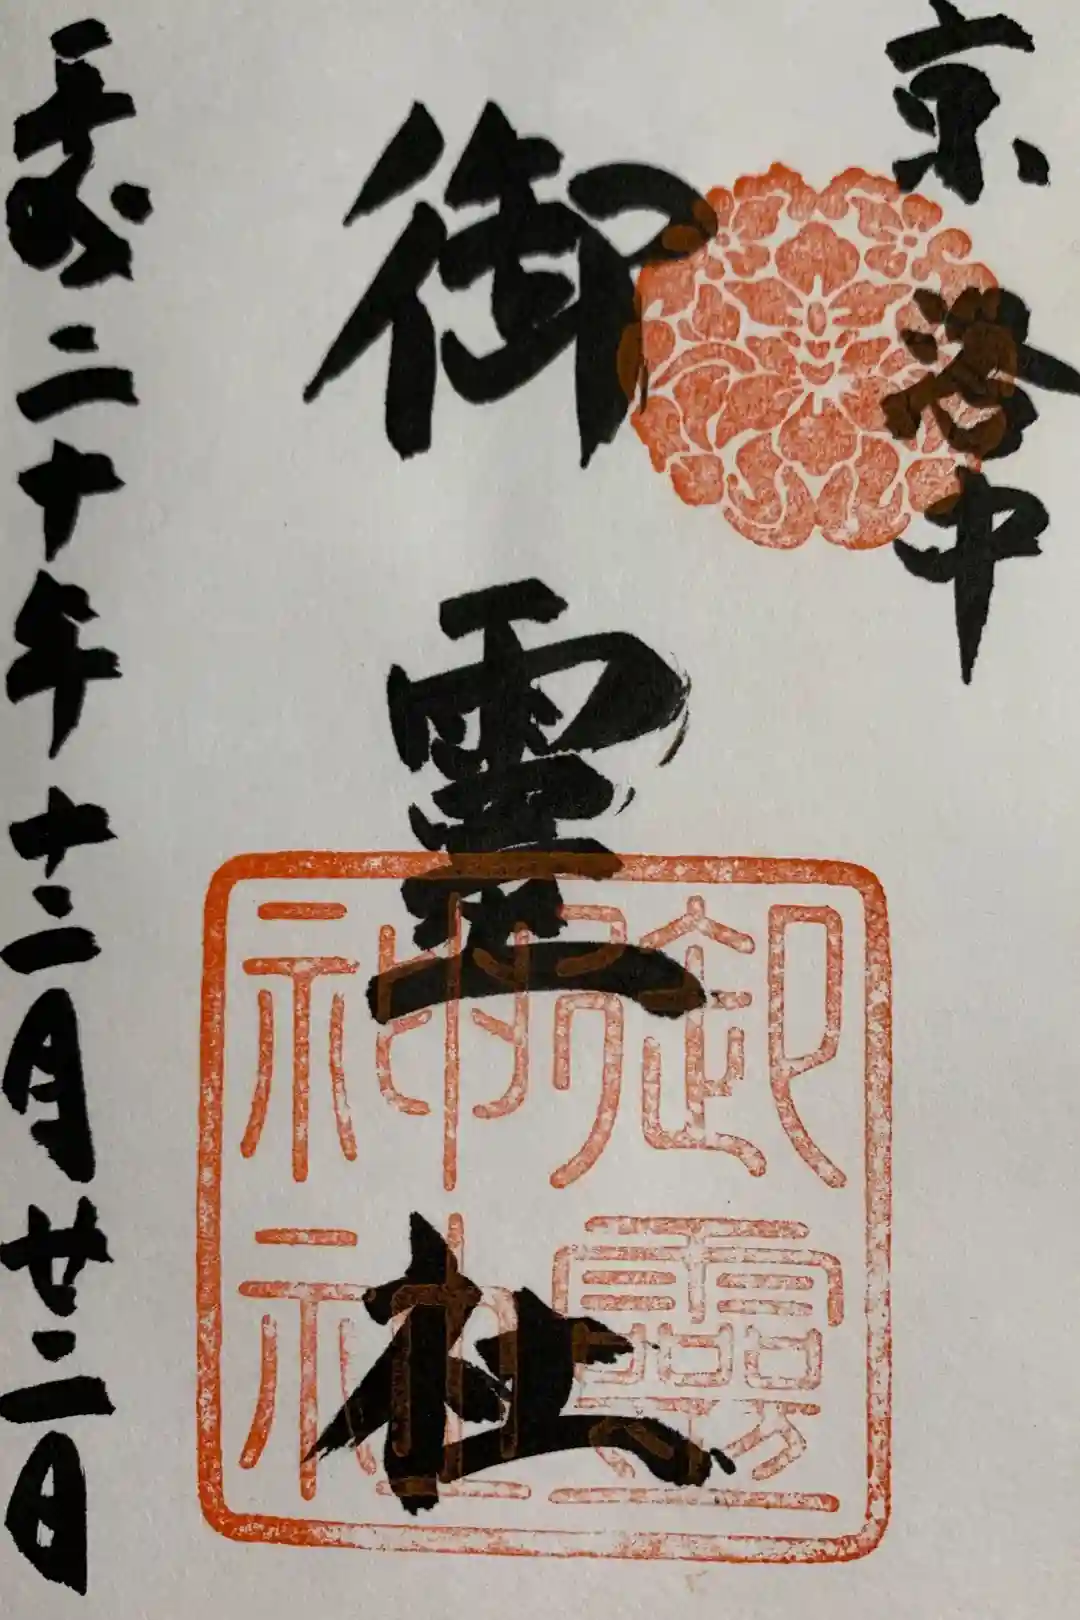 京洛中
御霊社
御靈
神社
平成二十年十二月廿二日